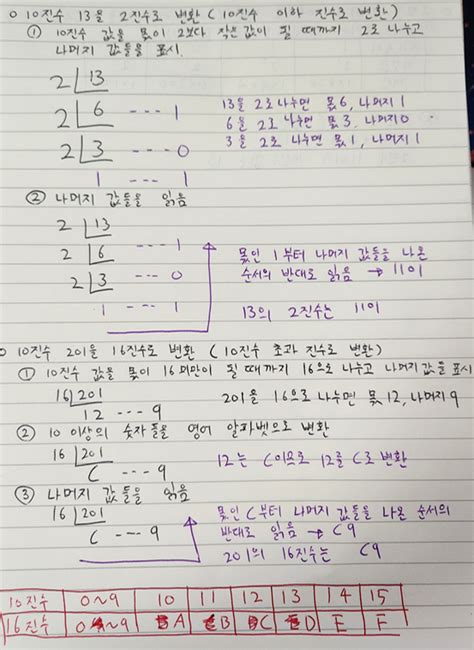 ○ 10진수 13을 2진수로 변환 (10진수 이하 진수로 변환)
① 10진수 값을 몫이 2보다 작은 값이 될 때까지 2로 나누고
나머지 값들을 표시.
2 13
2 6 --- 1
2 3 --- 0
1 --- 1
13을 2로 나누면 몫 6, 나머지 1
6을 2로 나누면 몫 3, 나머지 0
3을 2로 나누면 몫 1, 나머지 1
② 나머지 값들을 읽음
2 13
2 6 --- 1
2 3 --- 0
1 --- 1
몫인 1부터 나머지 값들을 나온
순서의 반대로 읽음 → 1101
13의 2진수는 1101
○ 10진수 201을 16진수로 변환 (10진수 초과 진수로 변환)
① 10진수 값을 몫이 16 미만이 될 때까지 16으로 나누고 나머지 값들 표시
16 201
12 --- 9
201을 16으로 나누면 몫 12, 나머지 9
② 10 이상의 숫자들을 영어 알파벳으로 변환
16 201
C --- 9
12는 C이므로 12를 C로 변환
③ 나머지 값들을 읽음
16 201
C --- 9
몫인 C부터 나머지 값들을 나온 순서의
반대로 읽음 → C9
201의 16진수는 C9
10진수 0~9 10 11 12 13 14 15
16진수 0~9 A B C D E F